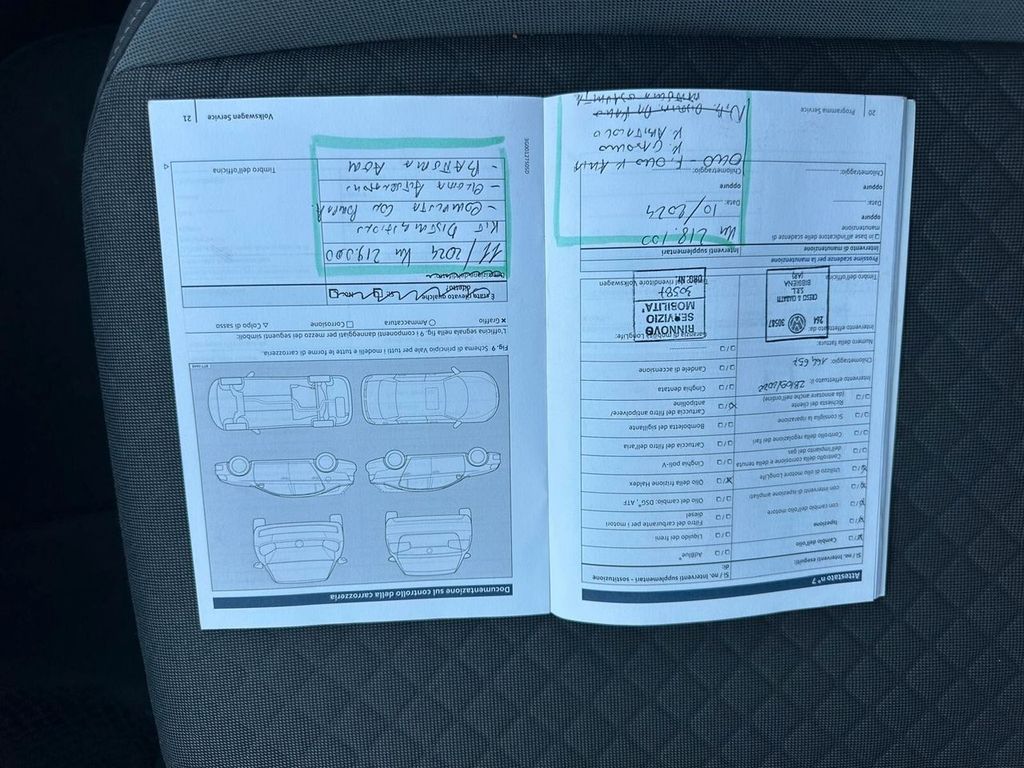 Attestato n° 7
Sì / no. Interventi eseguiti:
Cambio dell'olio
Ispezione
con cambio dell'olio motore
con interventi di ispezione ampliati
Utilizzo di olio motore LongLife
Controllo della corrosione e della tenuta dell'impianto del gas
Controllo della regolazione dei fari
Si consiglia la riparazione
Richiesta del cliente
(da annotare anche nell'ordine)
Intervento effettuato il: 28/09/2022
Chilometraggio: 144,657
Numero della fattura:
Intervento effettuato da:
264 30587
CRESCI & CIABATTI
S.R.L.
BIBBIENA
(AR)
Timbro dell'officina
Sì / no. Interventi supplementari - sostituzione di:
AdBlue®
Liquido dei freni
Filtro del carburante per i motori diesel
Olio del cambio: DSG®, ATF
Olio della frizione Haldex
Cinghia poli-V
Cartuccia del filtro dell'aria
Bomboletta del sigillante
Cartuccia del filtro antipolvere/
antipolline
Cinghia dentata
Candele di accensione
Garanzia di mobilità LongLife:
RINNOVO
SERVIZIO
MOBILITÀ
30587
Timbro del rivenditore Volkswagen
Prossime scadenze per la manutenzione
Intervento di manutenzione
Interventi supplementari
in base all'indicatore delle scadenze di
manutenzione
oppure
Data:
oppure
Chilometraggio:
Km 218.100
Data:
10/2024
oppure
Chilometraggio:
OLIO - F. OLIO F. ARIA
20
Programma Service
Documentazione sul controllo della carrozzeria
Fig. 9 Schema di principio Vale per tutti i modelli e tutte le forme di carrozzeria.
L'officina segnala nella fig. 9 i componenti danneggiati per mezzo dei seguenti simboli:
× Graffio ○ Ammaccatura □ Corrosione △ Colpo di sasso
È stato rilevato qualche difetto?
sì no
11/2024 Km 219.000
KIT DISTRIBUZIONE
- COMPLETA CON POMPA
- BATTERIA AGM
Timbro dell'officina
3G0012750SO
Volkswagen Service
21